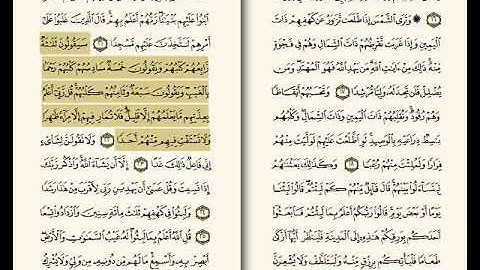 ۞ وَتَرَى الشَّمْسَ إِذَا طَلَعَت تَّزَاوَرُ عَن كَهْفِهِمْ ذَاتَ
الْيَمِينِ وَإِذَا غَرَبَت تَّقْرِضُهُمْ ذَاتَ الشِّمَالِ وَهُمْ فِي فَجْوَةٍ
مِّنْهُ ذَٰلِكَ مِنْ آيَاتِ اللَّهِ مَن يَهْدِ اللَّهُ فَهُوَ الْمُهْتَدِ وَمَن
يُضْلِلْ فَلَن تَجِدَ لَهُ وَلِيًّا مُّرْشِدًا ١٧ وَتَحْسَبُهُمْ أَيْقَاظًا
وَهُمْ رُقُودٌ وَنُقَلِّبُهُمْ ذَاتَ الْيَمِينِ وَذَاتَ الشِّمَالِ وَكَلْبُهُم
بَاسِطٌ ذِرَاعَيْهِ بِالْوَصِيدِ لَوِ اطَّلَعْتَ عَلَيْهِمْ لَوَلَّيْتَ مِنْهُمْ
فِرَارًا وَلَمُلِئْتَ مِنْهُمْ رُعْبًا ١٨ وَكَذَٰلِكَ بَعَثْنَاهُمْ
لِيَتَسَاءَلُوا بَيْنَهُمْ قَالَ قَائِلٌ مِّنْهُمْ كَمْ لَبِثْتُمْ قَالُوا لَبِثْنَا
يَوْمًا أَوْ بَعْضَ يَوْمٍ قَالُوا رَبُّكُمْ أَعْلَمُ بِمَا لَبِثْتُمْ فَابْعَثُوا
أَحَدَكُم بِوَرِقِكُمْ هَٰذِهِ إِلَى الْمَدِينَةِ فَلْيَنظُرْ أَيُّهَا أَزْكَىٰ
طَعَامًا فَلْيَأْتِكُم بِرِزْقٍ مِّنْهُ وَلْيَتَلَطَّفْ وَلَا يُشْعِرَنَّ
ابْنُوا عَلَيْهِم بُنْيَانًا رَّبُّهُمْ أَعْلَمُ بِهِمْ قَالَ الَّذِينَ غَلَبُوا عَلَىٰ
أَمْرِهِمْ لَنَتَّخِذَنَّ عَلَيْهِم مَّسْجِدًا ٢١ سَيَقُولُونَ ثَلَاثَةٌ
رَّابِعُهُمْ كَلْبُهُمْ وَيَقُولُونَ خَمْسَةٌ سَادِسُهُمْ كَلْبُهُمْ رَجْمًا
بِالْغَيْبِ وَيَقُولُونَ سَبْعَةٌ وَثَامِنُهُمْ كَلْبُهُمْ قُل رَّبِّي أَعْلَمُ
بِعِدَّتِهِم مَّا يَعْلَمُهُمْ إِلَّا قَلِيلٌ فَلَا تُمَارِ فِيهِمْ إِلَّا مِرَاءً ظَاهِرًا
وَلَا تَسْتَفْتِ فِيهِم مِّنْهُمْ أَحَدًا ٢٢ وَلَا تَقُولَنَّ لِشَايْءٍ
إِنِّي فَاعِلٌ ذَٰلِكَ غَدًا ٢٣ إِلَّا أَن يَشَاءَ اللَّهُ وَاذْكُر رَّبَّكَ
إِذَا نَسِيتَ وَقُلْ عَسَىٰ أَن يَهْدِيَنِ رَبِّي لِأَقْرَبَ مِنْ هَٰذَا رَشَدًا
٢٤ وَلَبِثُوا فِي كَهْفِهِمْ ثَلَاثَ مِائَةٍ سِنِينَ وَازْدَادُوا تِسْعًا
٢٥ قُلِ اللَّهُ أَعْلَمُ بِمَا لَبِثُوا لَهُ غَيْبُ السَّمَاوَاتِ وَالْأَرْضِ
أَبْصِرْ بِهِ وَأَسْمِعْ مَا لَهُم مِّن دُونِهِ مِن وَلِيٍّ وَلَا يُشْرِكُ